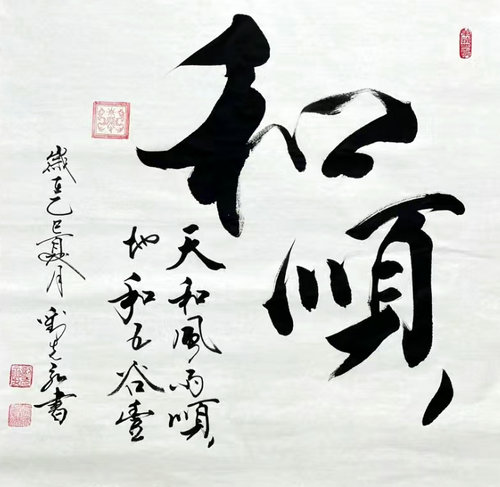 和順
天和風雨順
地和五谷豐
歲在乙巳夏月
書